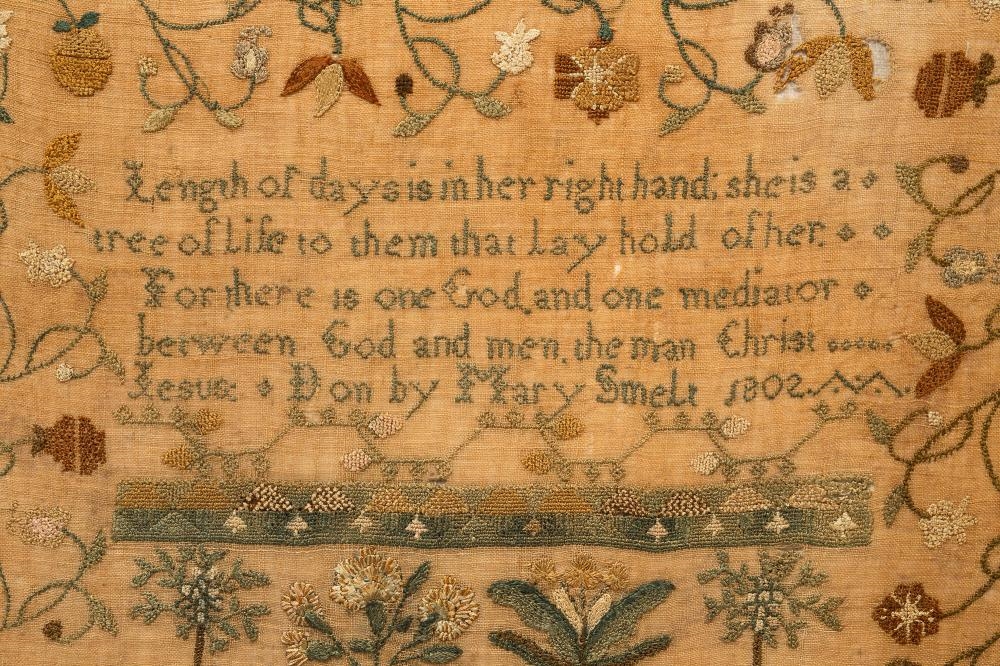 Length of days is in her right hand; she is a
tree of life to them that Lay hold of her.
For there is one God, and one mediator
between God and men, the man Christ
Jesus: Don by Mary Smelt 1802